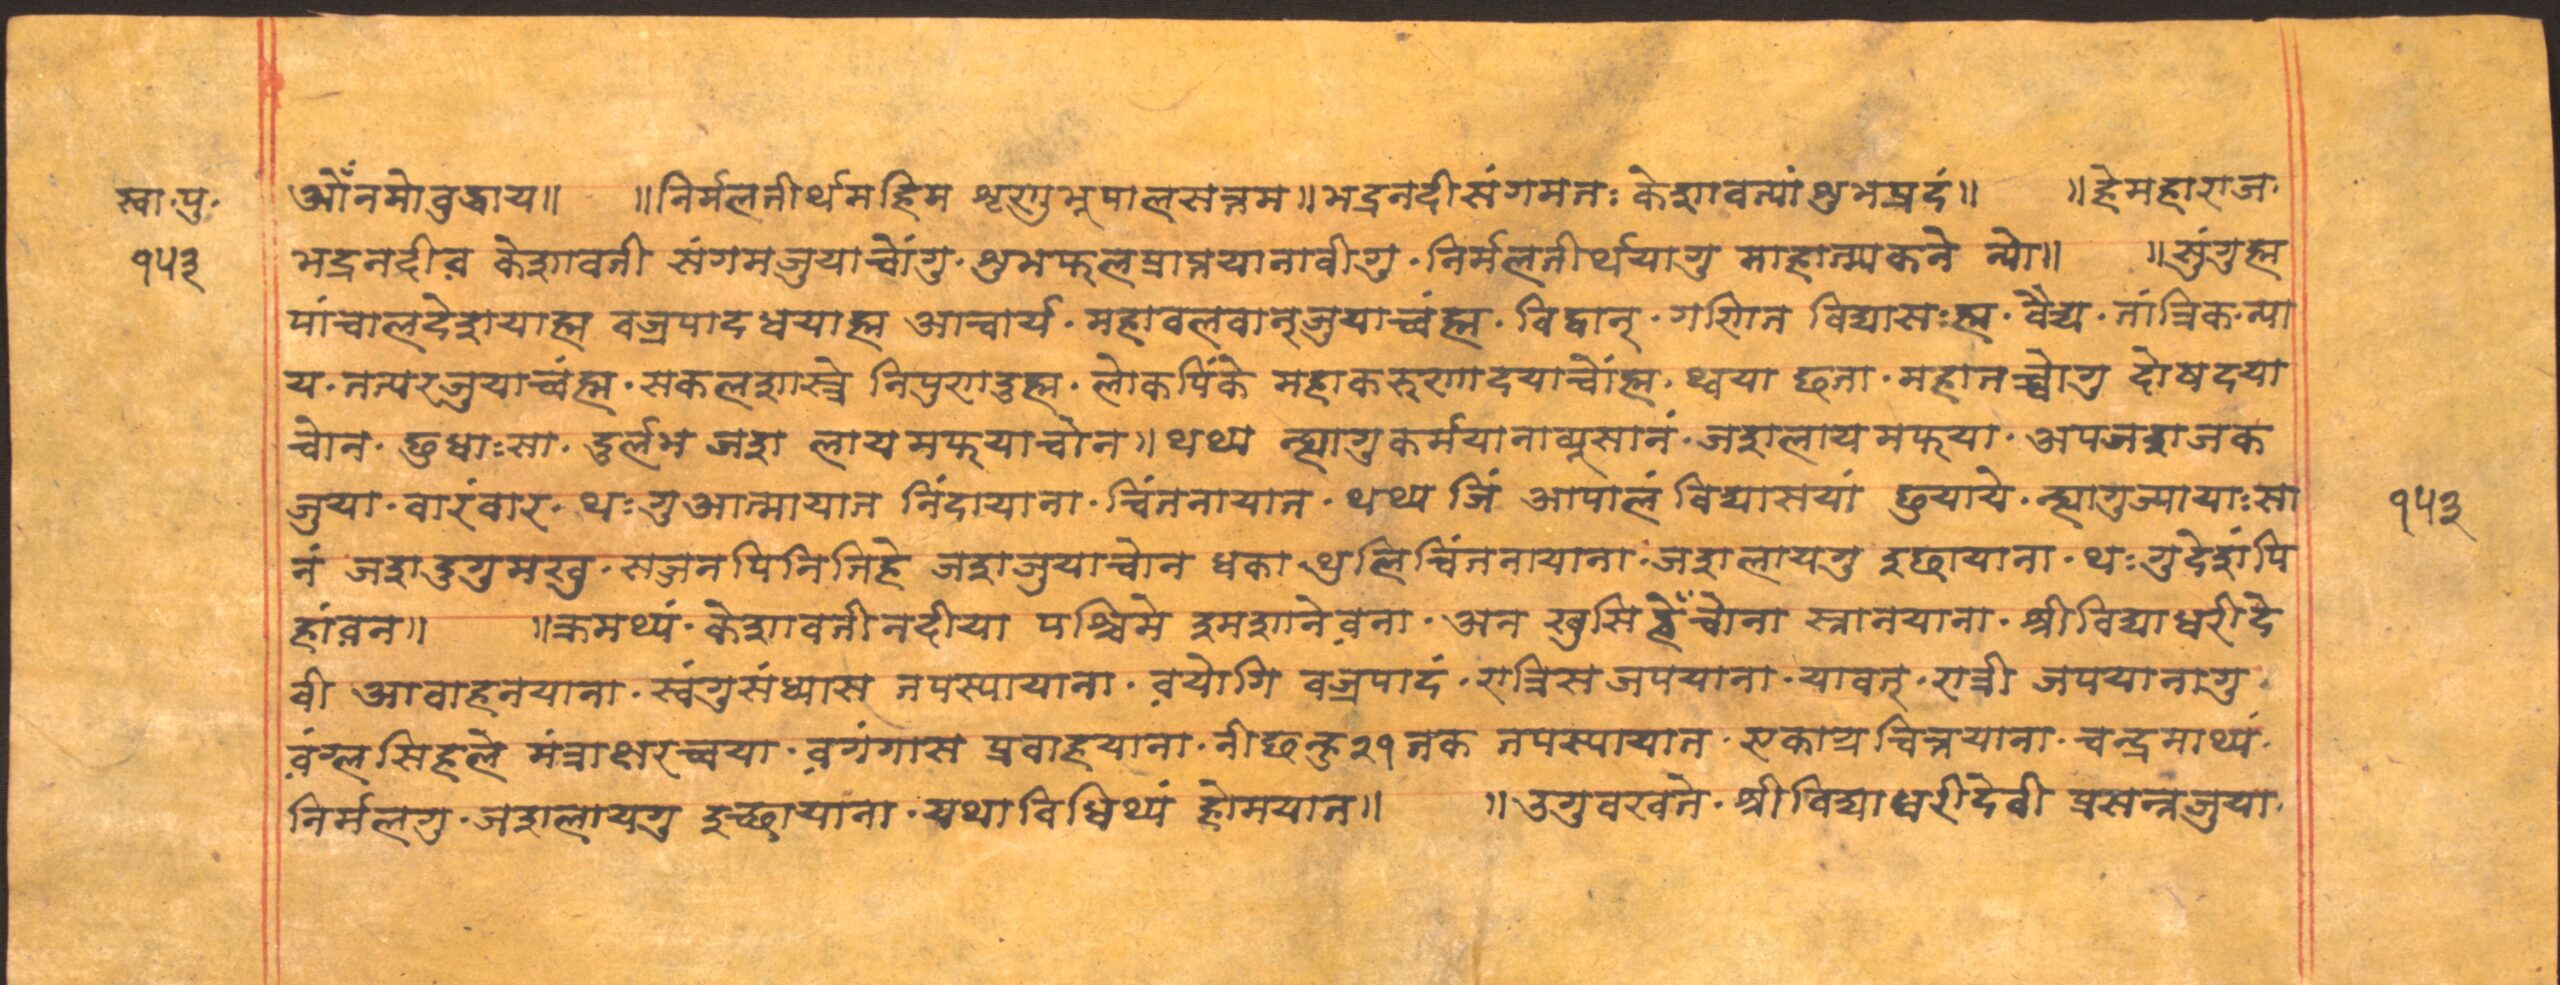 स्वा·पु·
१५३
ओँनमोवुद्धाय॥ ॥निर्मलतीर्थमहिम शृणुभूपालसत्तम॥भद्रनदीसंगमतः केशावत्यांशुभप्रदं॥ ॥हेमहाराज·
भद्रनदीव़ केशावती संगमजुयाच्वोंगु·शुभफलप्राप्तयानावीगु·निर्मलतीर्थयागु माहात्म्यकने न्यो॥ ॥सुंगुह्म
पांचालदेशयाह्म वज्रपादधयाह्म आचार्य·महावलवान्जुयाच्वंह्म·विद्वान्·गणित विद्यासःह्म·वैद्य·तांत्रिक·न्या
य·तत्परजुयाच्वंह्म·सकलशास्त्रे निपुणदुह्म·लोकपिंके महाकरुणादयाच्वोंह्म·थ्वया छता·महानच्वोगु दोषदया
च्वोन·छुधाःसा·दुर्लभ जश लायमफयाच्वोन॥थथ्य न्ह्यागुकर्मयानाव्यूसानं·जशलायमफया·अपजशजक
जुया·वारंवार·थःगुआत्मायात निंदायाना·चिंतनायात·थथ्य जिं आपालं विद्यासयां छुयाये·न्ह्यागुज्यायाःसा
१५३
नं जशदुगुमखु·सज्जनपिनिनिहे जशजुयाच्वोन धका·थुलिचिंतनायाना·जशलायगु इछायाना·थःगुदेशंपि
हांव़न॥ ॥क्रमथ्यं·केशावतीनदीया पश्चिमे श्मशानेव़ना·अन खुसि च्वोना स्नानयाना·श्रीविद्याधरीदे
वी आवाहनयाना·स्वंगुसंध्यास तपस्यायाना·व़योगि वज्रपादं·रात्रिस जपयाना·यावत्·रात्री जपयानागु·
व़ंग्लसिहले मंत्राक्षरच्वया·व़गंगास प्रवाहयाना·नीछन्हु२१तक तपस्यायात·एकाग्रचित्तयाना·चन्द्रमाथ्यं·
निर्मलगु·जशलायगु इच्छायाना·यथाविधिथ्यं होमयात॥ ॥उगुवखते·श्रीविद्याधरीदेवी प्रसन्नजुया·